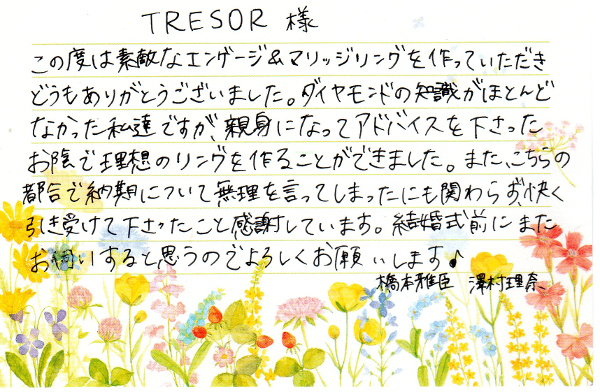 TRESOR 様
この度は素敵なエンゲージ&マリッジリングを作っていただき
どうもありがとうございました。ダイヤモンドの知識がほとんど
なかった私達ですが、親身になってアドバイスを下さった
お陰で理想のリングを作ることができました。また、こちらの
都合で納期について無理を言ってしまったにも関わらず、快く
引き受けて下さったこと感謝しています。結婚式前にまた
お伺いすると思うのでよろしくお願いします♪
橋本雅臣 澤村理奈